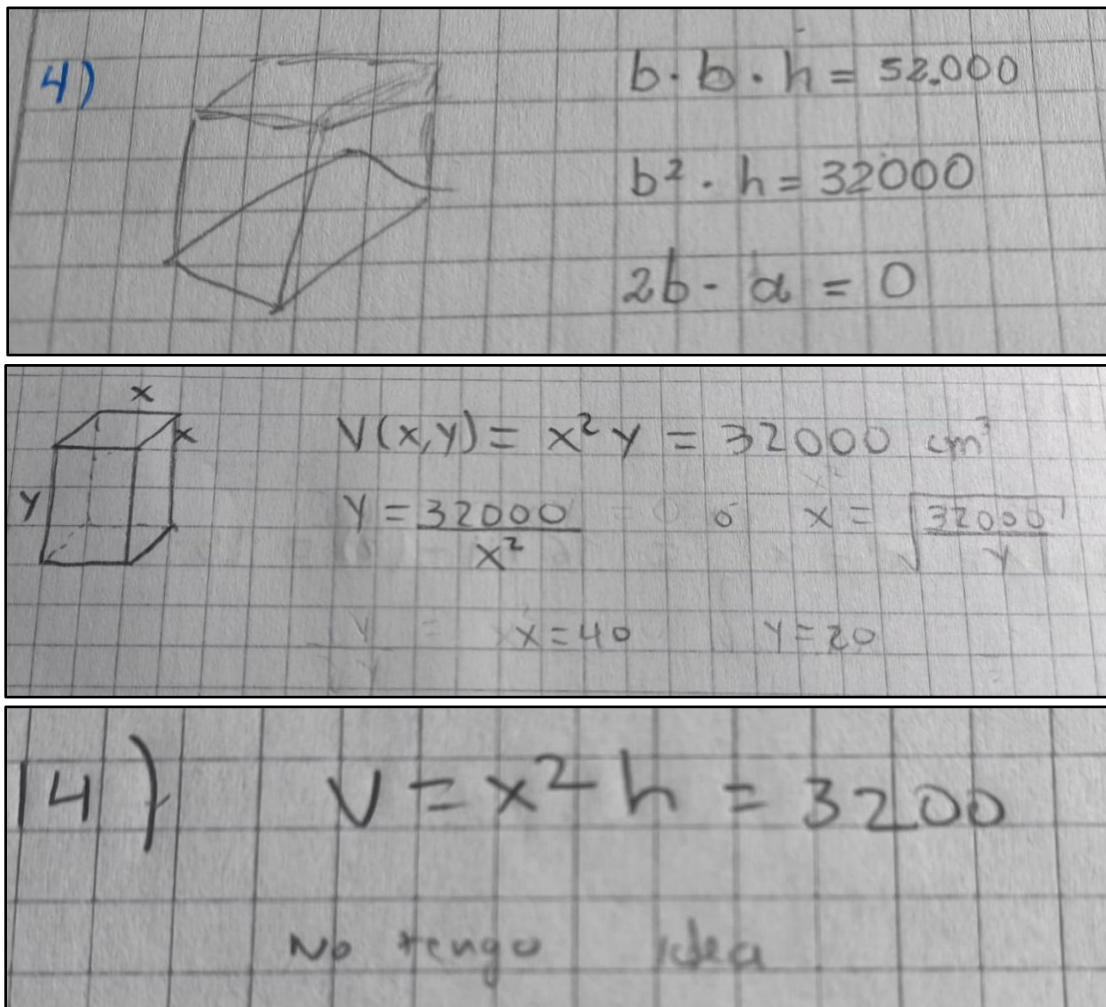 4)
b · b · h = 52.000
b² · h = 32000
2b - a = 0
x
x
y
V(x,y) = x² y = 32000 cm³
y = 32000 / x² ó x = √(32000 / y)
x = 40 y = 20
14)
V = x² h = 3200
No tengo idea